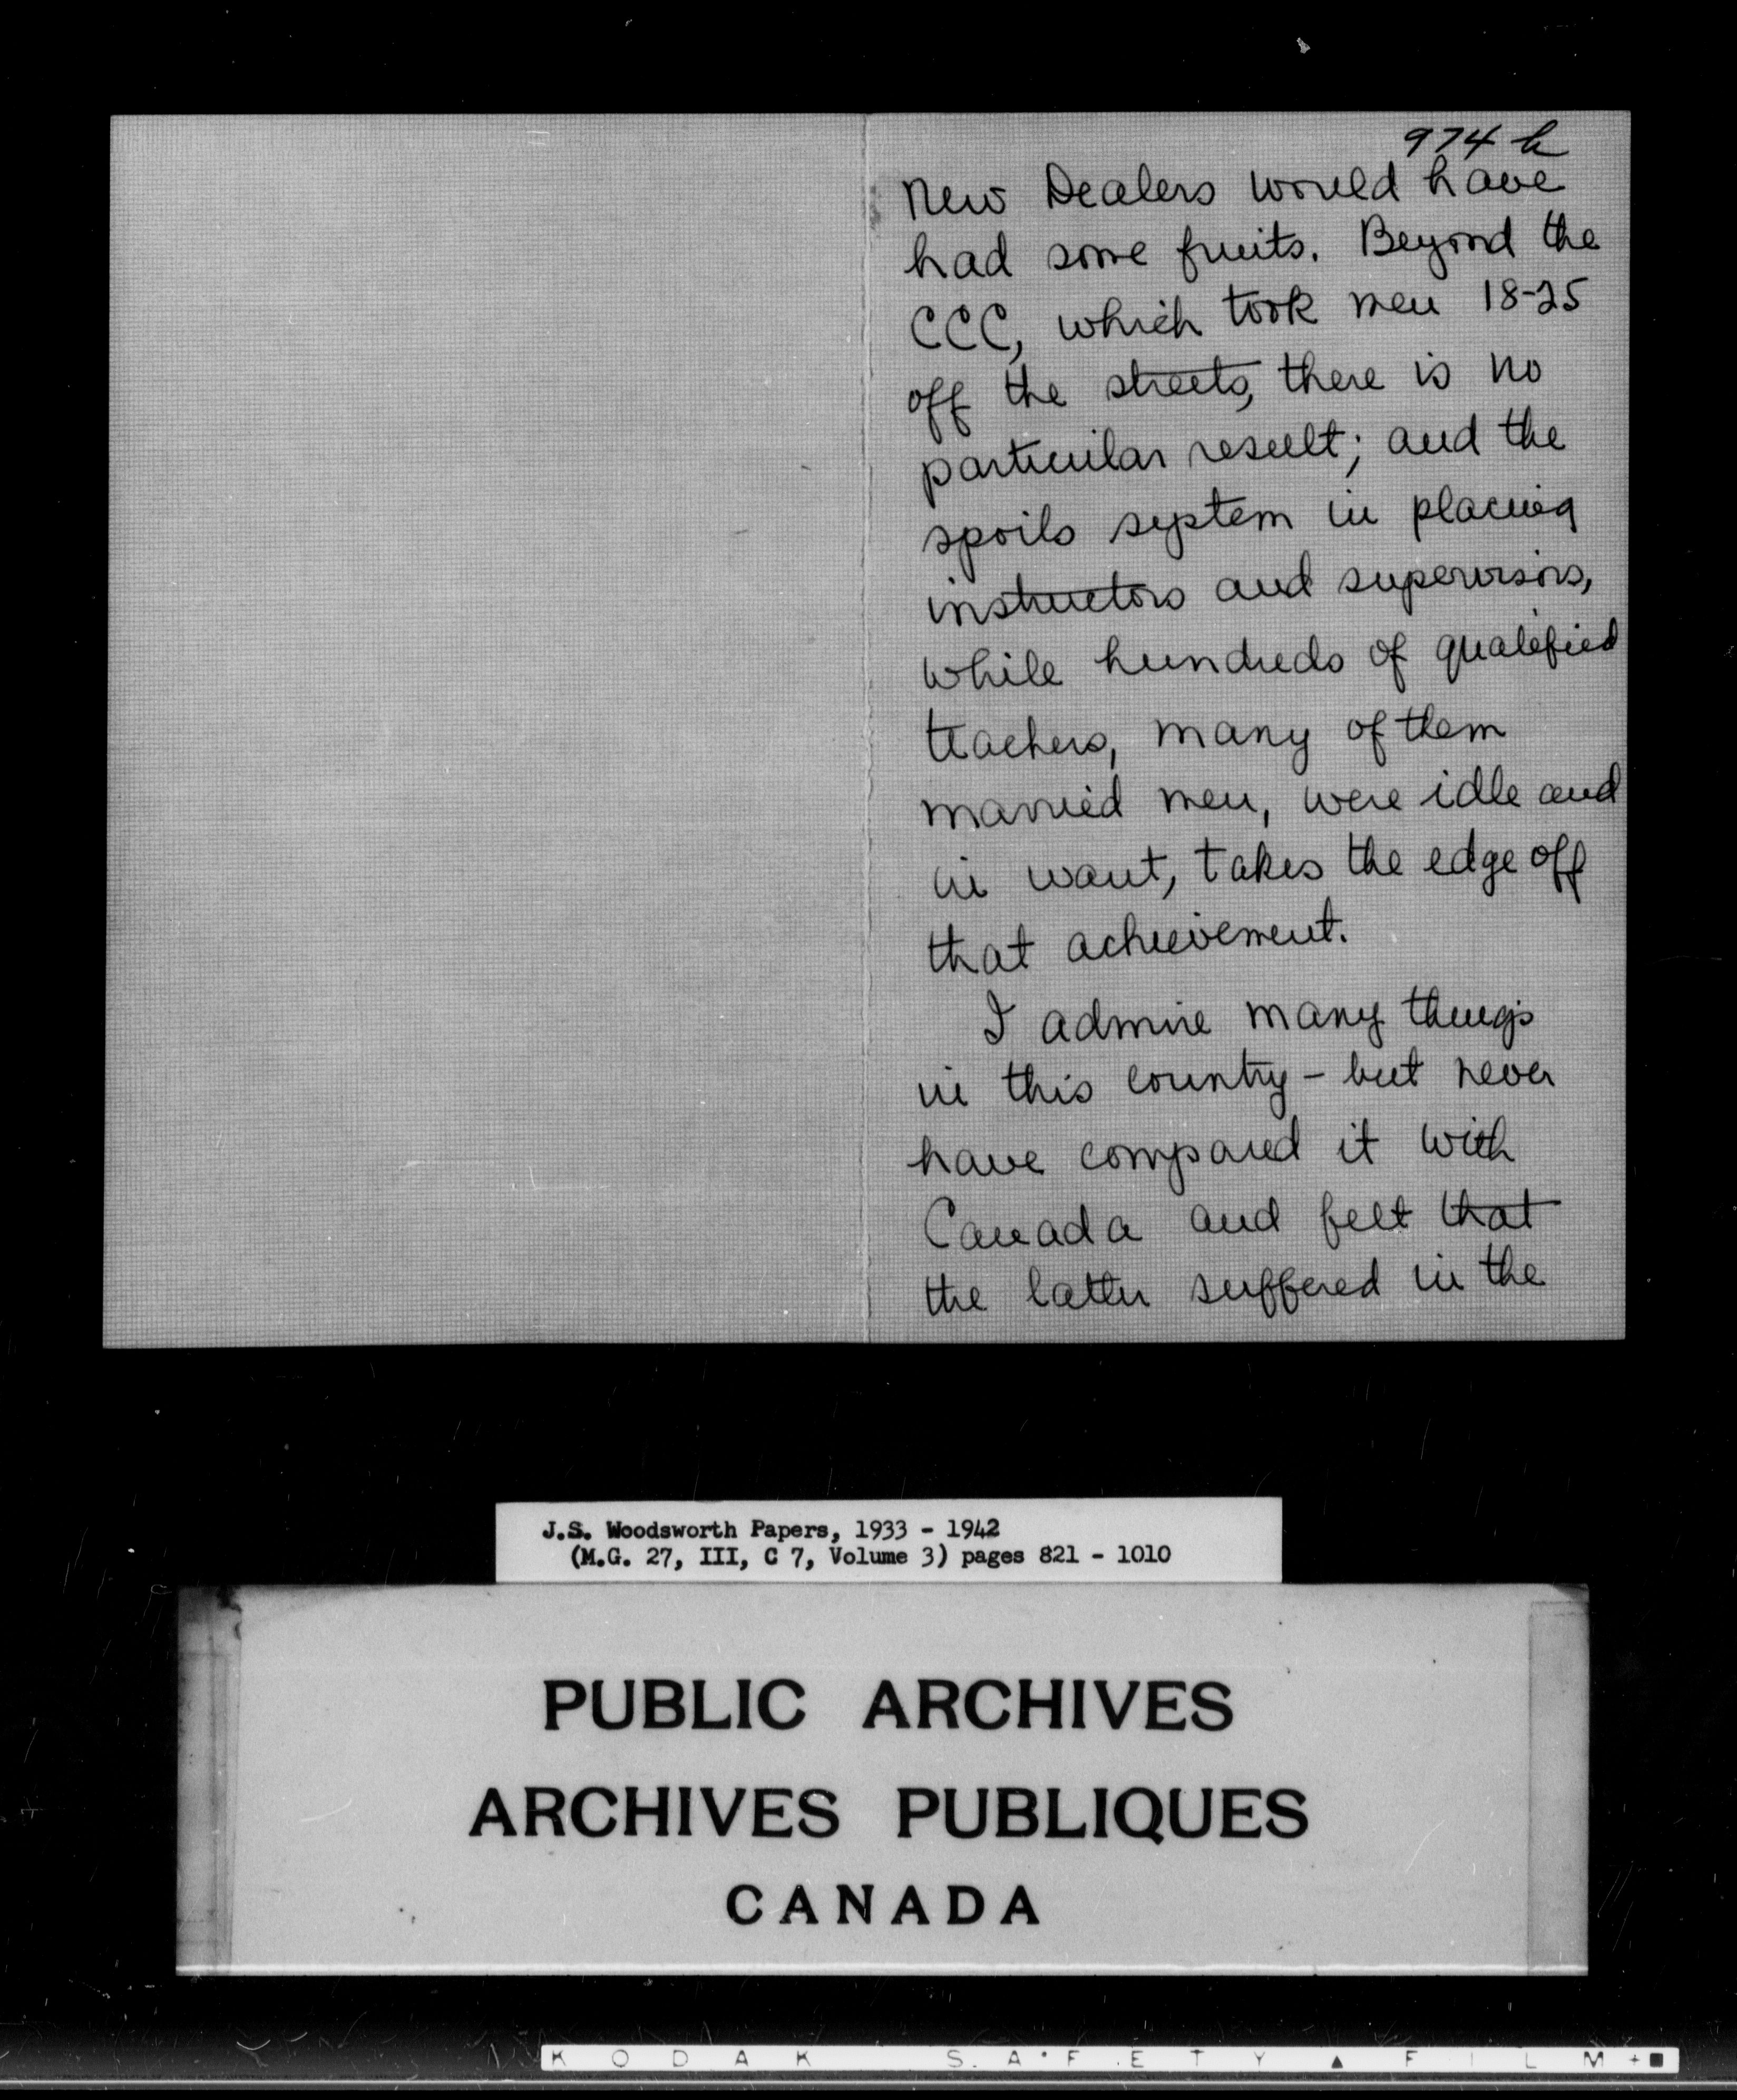 974 h
New Dealers would have
had some fruits. Beyond the
CCC, which took men 18-25
off the streets, there is no
particular result; and the
spoils system in placing
instructors and supervisors,
while hundreds of qualified
teachers, many of them
married men, were idle and
in want, takes the edge off
that achievement.
I admire many things
in this country - but never
have compared it with
Canada and felt that
the latter suffered in the
J.S. Woodsworth Papers, 1933 - 1942
(M.G. 27, III, C 7, Volume 3) pages 821 - 1010
PUBLIC ARCHIVES
ARCHIVES PUBLIQUES
CANADA
KODAK SAFETY ▲ FILM + ■